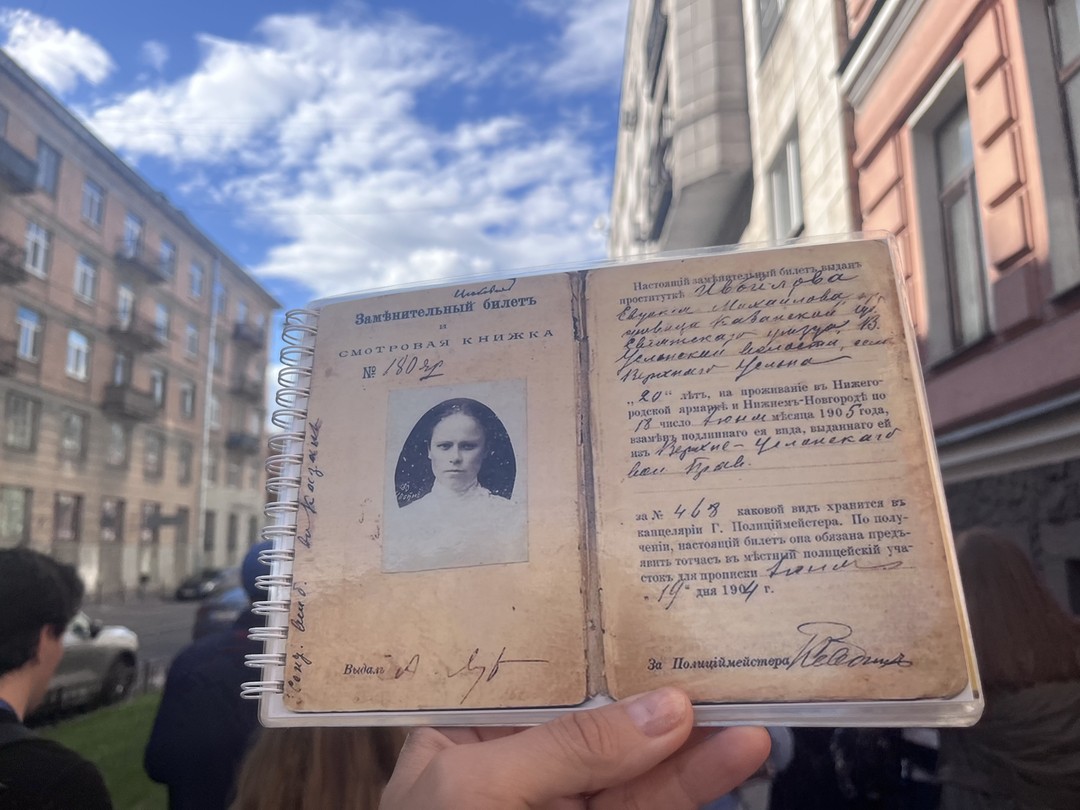 Замѣнительный билетъ
и
СМОТРОВАЯ КНИЖКА
№ 180 яр
Выдалъ
Настоящій замѣнительный билетъ выданъ
проституткѣ Ивойлова
Евдокія Михайлова, кр.
Казанской г.
уѣзда. В.
Услонской волости, села
Верхняго Услона
„20“ лѣтъ, на проживаніе въ Нижего-
родской армаркѣ и Нижнемъ-Новгородѣ по
18 число Іюня мѣсяца 1905 года,
взамѣнъ подлиннаго ея вида, выданнаго ей
изъ Верхне-Услонскаго
вол Прав.
за № 468 каковой видъ хранится въ
канцеляріи Г. Полиціймейстера. По полу-
ченіи, настоящій билетъ она обязана предъ-
явить тотчасъ въ мѣстный полицейскій уча-
стокъ для прописки Іюня
„19“ дня 1904 г.
За Полиціймейстера